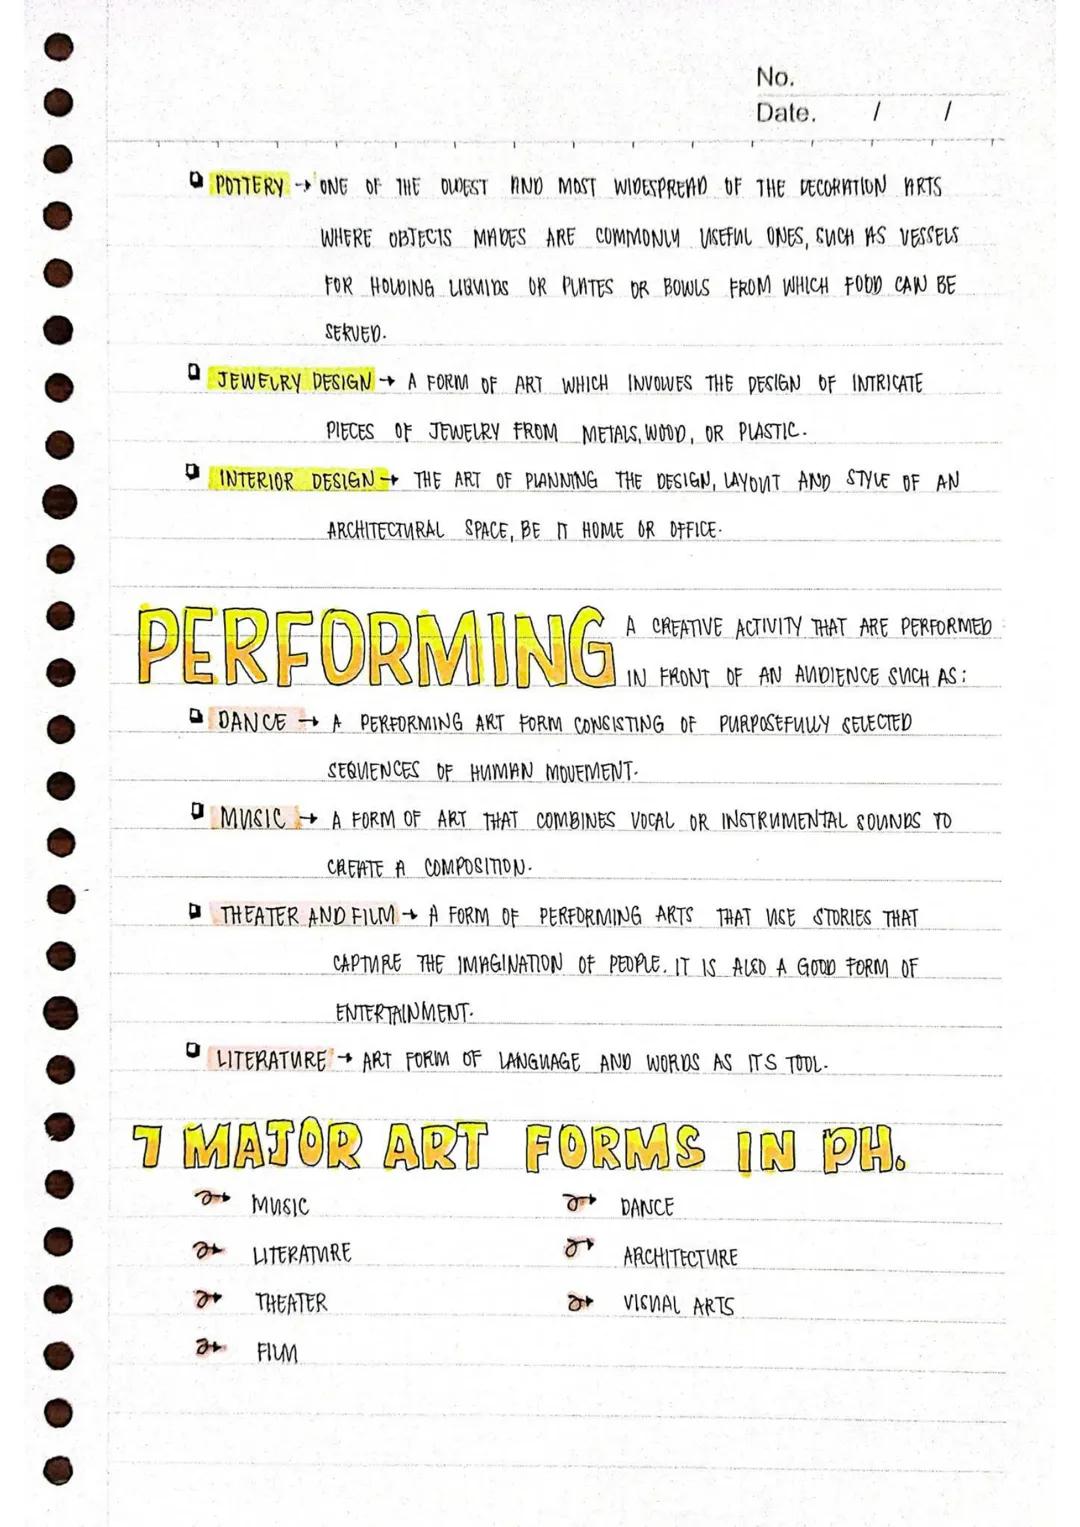 No.
Date. / /
POTTERY → ONE OF THE OLDEST AND MOST WIDESPREAD OF THE DECORATION ARTS
WHERE OBJECTS MADES ARE COMMONLY USEFUL ONES, SUCH AS VESSELS
FOR HOLDING LIQUIDS OR PLATES OR BOWLS FROM WHICH FOOD CAN BE
SERVED.
JEWELRY DESIGN → A FORM OF ART WHICH INVOLVES THE DESIGN OF INTRICATE
PIECES OF JEWELRY FROM METALS, WOOD, OR PLASTIC.
INTERIOR DESIGN → THE ART OF PLANNING THE DESIGN, LAYOUT AND STYLE OF AN
ARCHITECTURAL SPACE, BE IT HOME OR OFFICE.
PERFORMING A CREATIVE ACTIVITY THAT ARE PERFORMED
IN FRONT OF AN AUDIENCE SUCH AS:
DANCE → A PERFORMING ART FORM CONSISTING OF PURPOSEFULLY SELECTED
SEQUENCES OF HUMAN MOVEMENT.
MUSIC → A FORM OF ART THAT COMBINES VOCAL OR INSTRUMENTAL SOUNDS TO
CREATE A COMPOSITION.
THEATER AND FILM → A FORM OF PERFORMING ARTS THAT USE STORIES THAT
CAPTURE THE IMAGINATION OF PEOPLE. IT IS ALSO A GOOD FORM OF
ENTERTAINMENT.
LITERATURE → ART FORM OF LANGUAGE AND WORDS AS ITS TOOL.
7 MAJOR ART FORMS IN PH.
MUSIC
LITERATURE
THEATER
FILM
DANCE
ARCHITECTURE
VISUAL ARTS